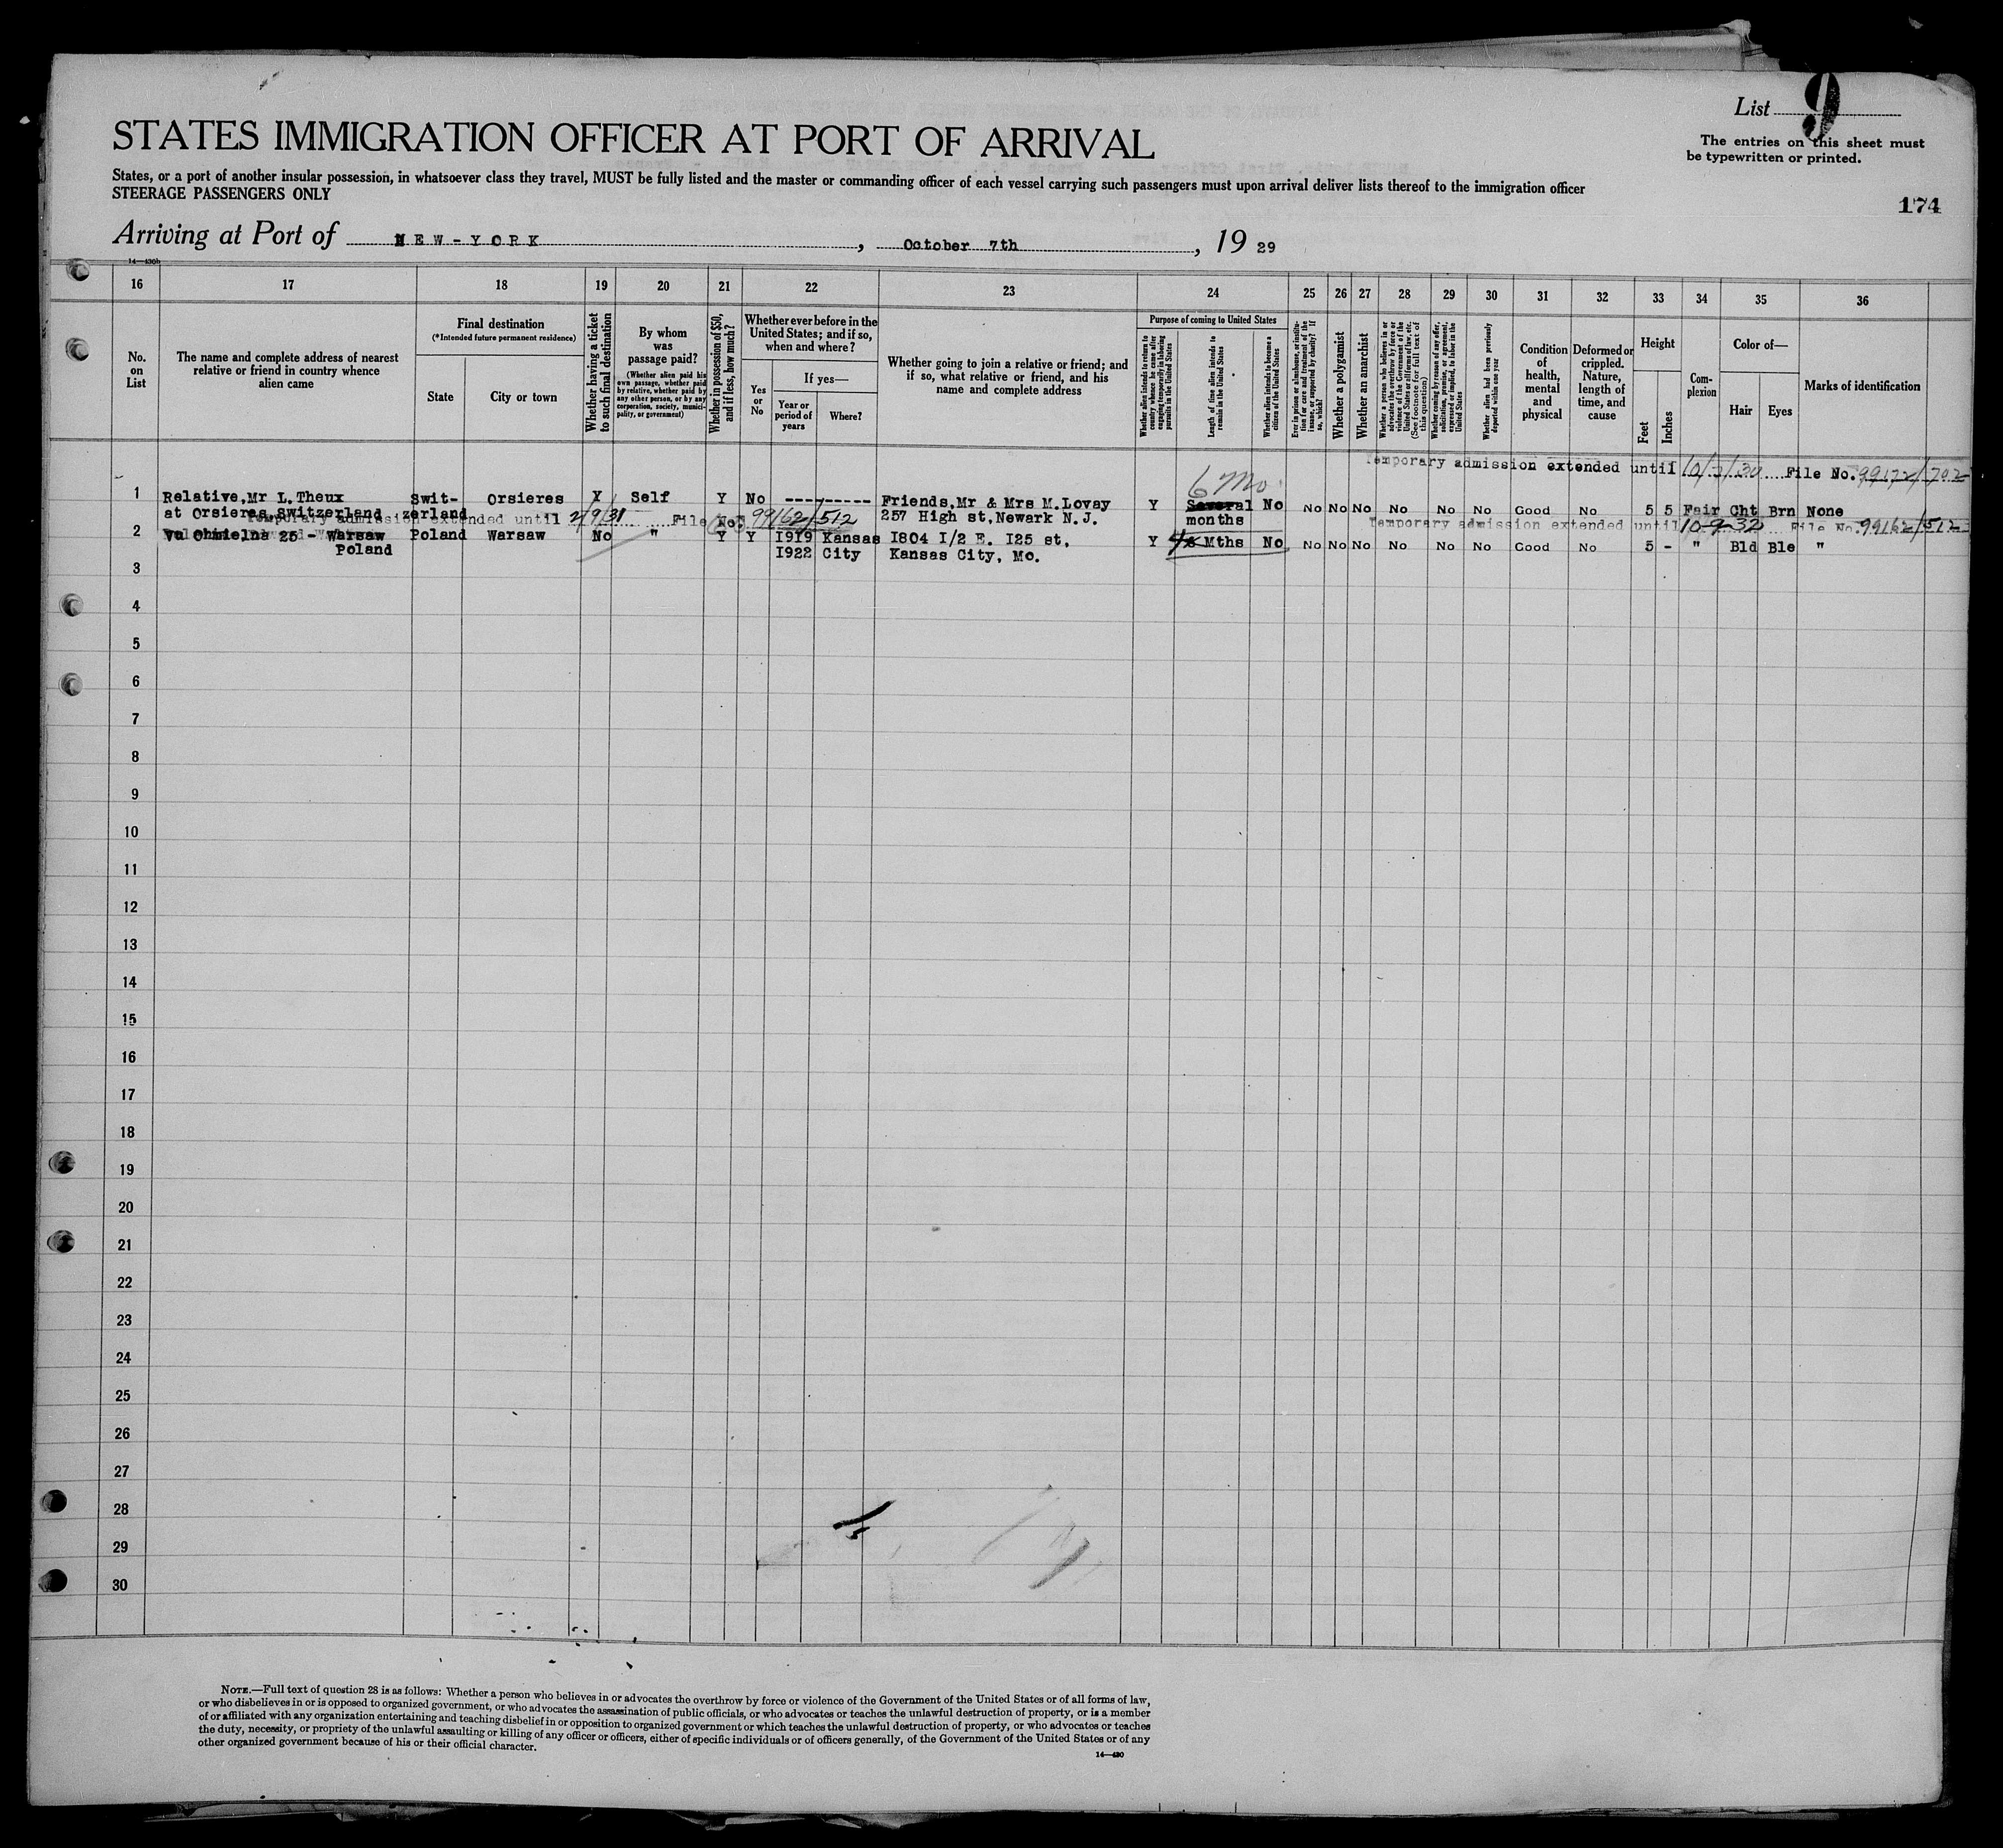 List 9
The entries on this sheet must
be typewritten or printed.
STATES IMMIGRATION OFFICER AT PORT OF ARRIVAL
States, or a port of another insular possession, in whatsoever class they travel, MUST be fully listed and the master or commanding officer of each vessel carrying such passengers must upon arrival deliver lists thereof to the immigration officer
STEERAGE PASSENGERS ONLY
174
Arriving at Port of NEW-YORK, October 7th, 19 29
14—430b
16 17 18 19 20 21 22 23 24 25 26 27 28 29 30 31 32 33 34 35 36
No.
on
List
The name and complete address of nearest
relative or friend in country whence
alien came
Final destination
(*Intended future permanent residence)
State
City or town
Whether having a ticket
to such final destination
By whom
was
passage paid?
(Whether alien paid his
own passage, whether paid
by relative, whether paid by
any other person, or by any
corporation, society, munici-
pality, or government)
Whether in possession of $50,
and if less, how much?
Whether ever before in the
United States; and if so,
when and where?
Yes
or
No
If yes—
Year or
period of
years
Where?
Whether going to join a relative or friend; and
if so, what relative or friend, and his
name and complete address
Purpose of coming to United States
Whether alien intends to return to
country whence he came after
engaging temporarily in laboring
pursuits in the United States
Length of time alien intends to
remain in the United States
Whether alien intends to become a
citizen of the United States
Ever in prison or almshouse, or institu-
tion for care and treatment of the
insane, or supported by charity? If
so, which?
Whether a polygamist
Whether an anarchist
Whether a person who believes in or
advocates the overthrow by force or
violence of the Government of the
United States or all forms of law, etc.
(See footnote for full text of
this question)
Whether coming by reason of any offer,
solicitation, promise, or agreement,
expressed or implied, to labor in the
United States
Whether alien had been previously
deported within one year
Condition
of
health,
mental
and
physical
Deformed or
crippled.
Nature,
length of
time, and
cause
Height
Feet
Inches
Com-
plexion
Color of—
Hair
Eyes
Marks of identification
Temporary admission extended until 10/7/30 File No. 99172/702
6 Mo.
1 Relative,Mr L.Theux Swit- Orsieres Y Self Y No --------- Friends,Mr & Mrs M.Lovay Y Several No No No No No No No Good No 5 5 Fair Cht Brn None
at Orsieres,Switzerland zerland 257 High st,Newark N.J. months
Temporary admission extended until 2/9/31 File No. 99162/512
Temporary admission extended until 10-9-32 File No. 99162/512
2 Chmielna 25 - Warsaw Poland Warsaw No " Y Y 1919 Kansas 1804 1/2 E. 125 st, Y Mths No No No No No No No Good No 5 - " Bld Ble "
Poland 1922 City Kansas City, Mo.
3
4
5
6
7
8
9
10
11
12
13
14
15
16
17
18
19
20
21
22
23
24
25
26
27
28
29
30
NOTE.—Full text of question 28 is as follows: Whether a person who believes in or advocates the overthrow by force or violence of the Government of the United States or of all forms of law,
or who disbelieves in or is opposed to organized government, or who advocates the assassination of public officials, or who advocates or teaches the unlawful destruction of property, or is a member
of or affiliated with any organization entertaining and teaching disbelief in or opposition to organized government or which teaches the unlawful destruction of property, or who advocates or teaches
the duty, necessity, or propriety of the unlawful assaulting or killing of any officer or officers, either of specific individuals or of officers generally, of the Government of the United States or of any
other organized government because of his or their official character.
14—430